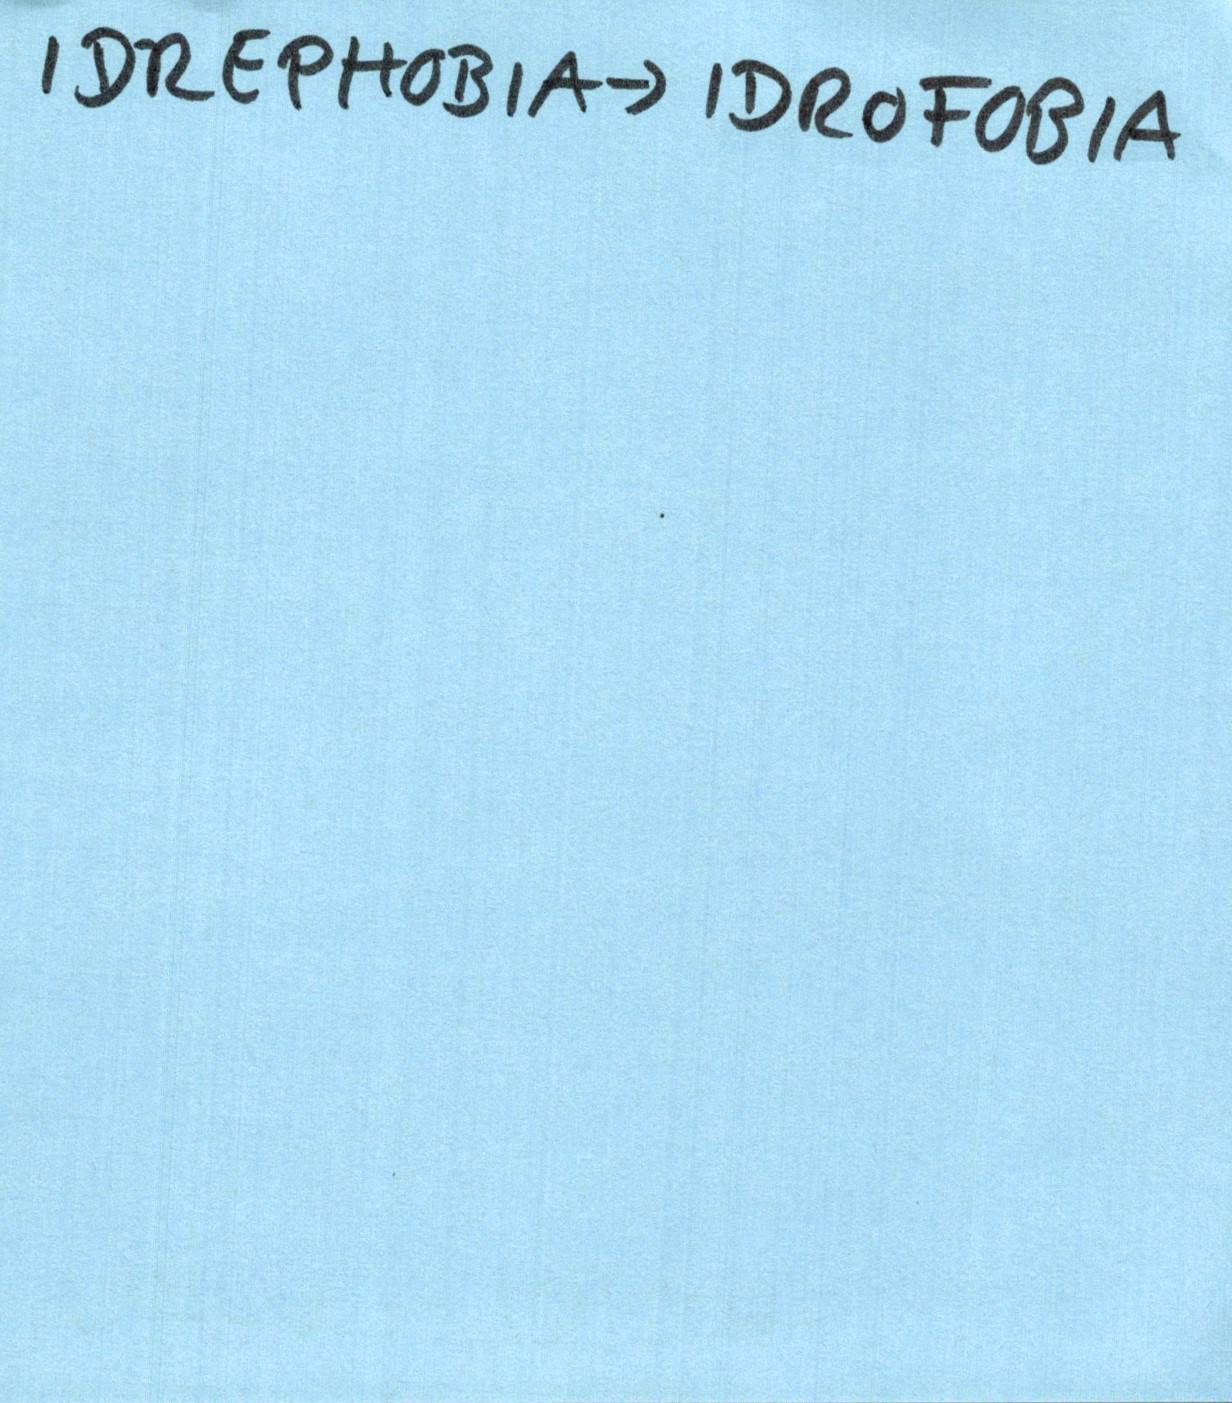 IDREPHOBIA→ IDROFOBIA